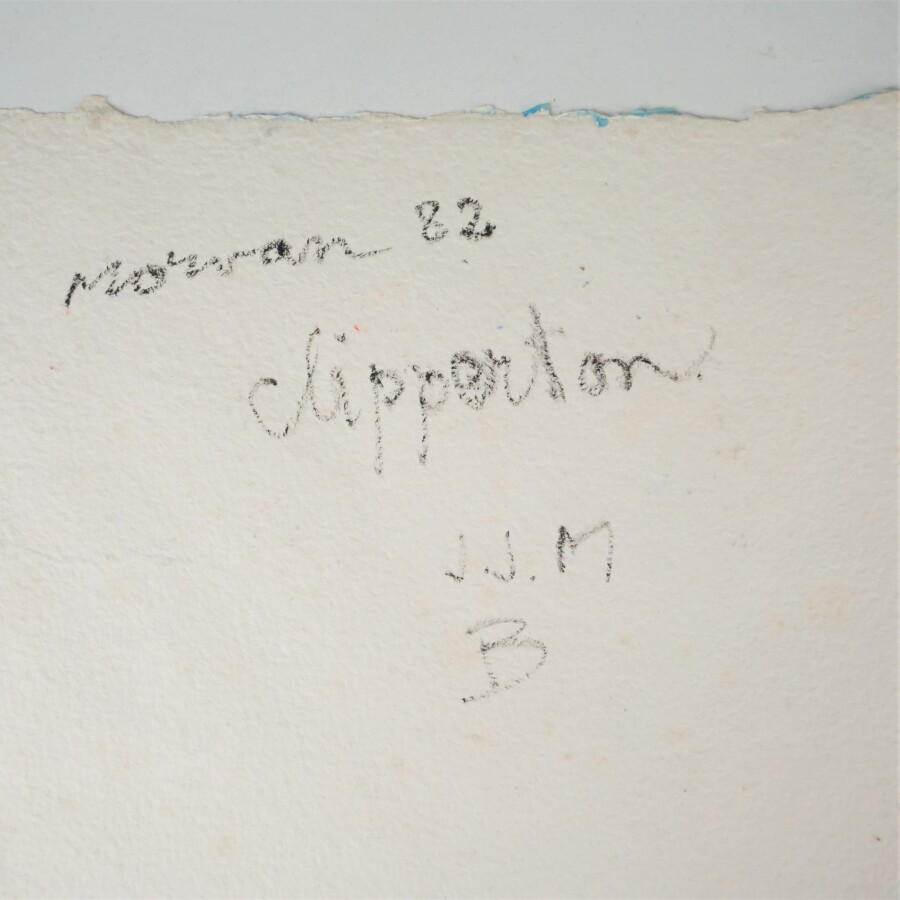 Morvan 82
clipperton
J.J.M
B